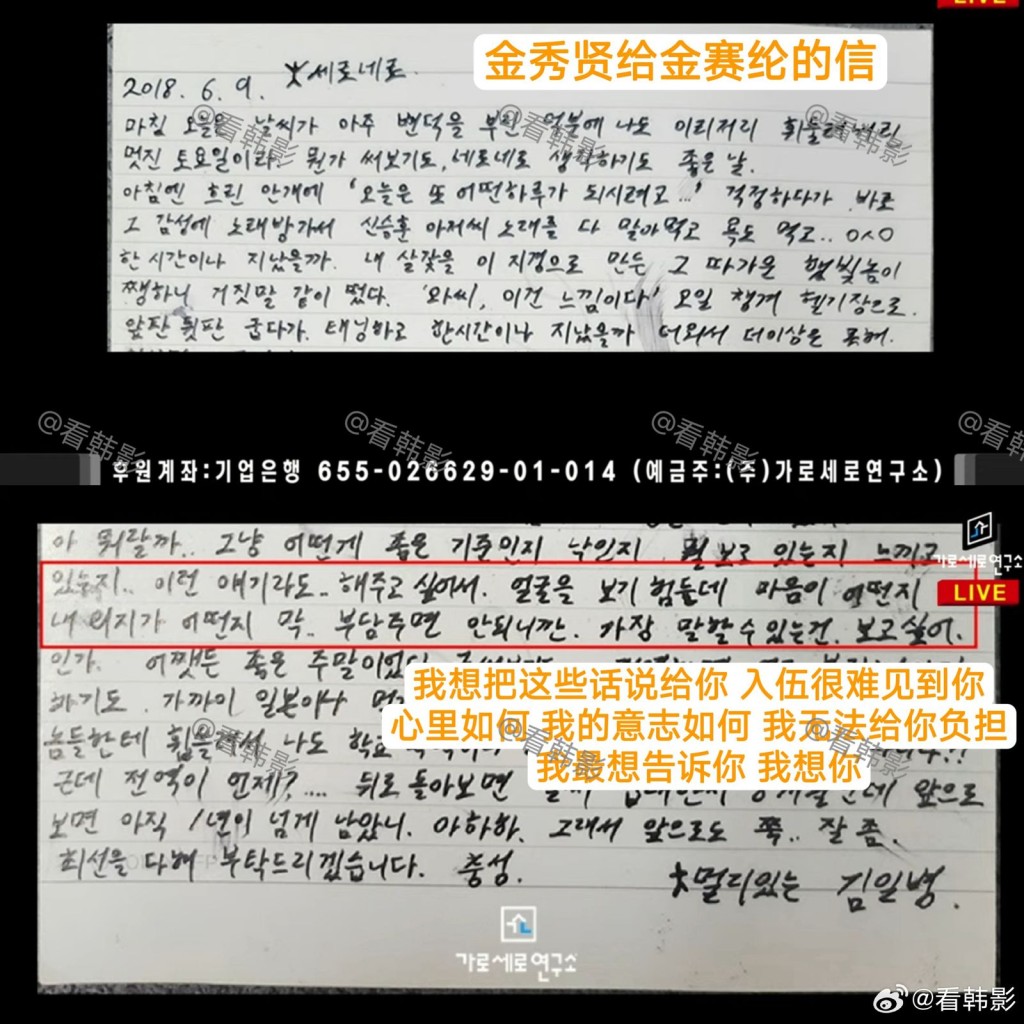 LIVE
金秀贤给金赛纶的信
2018. 6. 9. 세로네로.
마침 오늘은 날씨가 아주 변덕을 부린 덕분에 나도 이리저리
멋진 토요일이라. 뭔가 써보기도, 네로네로 생각하기도 좋은 날.
아침엔 흐린 안개에 '오늘은 또 어떤하루가 되시려고...' 걱정하다가 바로
그 감성에 노래방가서 신승훈 아저씨 노래를 다 말아먹고 욕도 먹고..
한 시간이나 지났을까. 내 살갗을 이 지경으로 만든 그 따가운 햇빛놈이
쨍하니 거짓말 같이 떴다. '와씨, 이건 느낌이다' 오일 챙겨 헬기장으로.
앞판 뒷판 굽다가. 태닝하고 한시간이나 지났을까 더워서 더이상은 못해.
@看韩影 @看韩影 @看韩影 @看韩影
후원계좌:기업은행 655-026629-01-014 (예금주:(주)가로세로연구소)
아 뭐랄까.. 그냥 어떤게 좋은 기준인지 낙인지 뭘 보고 있는지 느끼고
가로세로연구소
LIVE
있는지.. 이런 얘기라도.. 해주고 싶어서. 얼굴을 보기 힘들데 마음이 어떤지
내 의지가 어떤지 막.. 부담주면 안되니깐. 가장 말할수있는건. 보고싶어.
인가. 어쨌든 좋은 주말이었다
我想把这些话说给你 入伍很难见到你
心里如何 我的意志如何 我无法给你负担
我最想告诉你 我想你
하기도. 가까이
놈들한테 나도
근데 전역이 언제?.... 뒤로 돌아보면 앞으로
보면 아직 1년이 넘게 남았니. 아하하. 그래서 앞으로도 쭉.. 잘 좀.
최선을 다해 부탁드리겠습니다. 충성.
멀리있는 김일병.
가로세로연구소
@看韩影